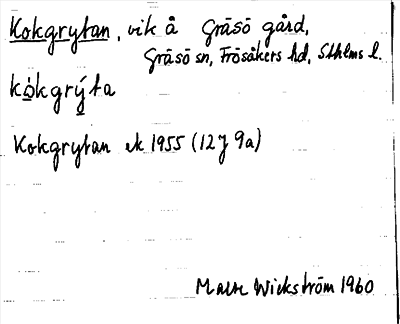 Kokgrytan, vik å Gräsö gård,
Gräsö sn, Frösåkers hd, Sthlms l.
kòkgrýta
Kokgrytan ek 1955 (12J 9a)
Malte Wickström 1960